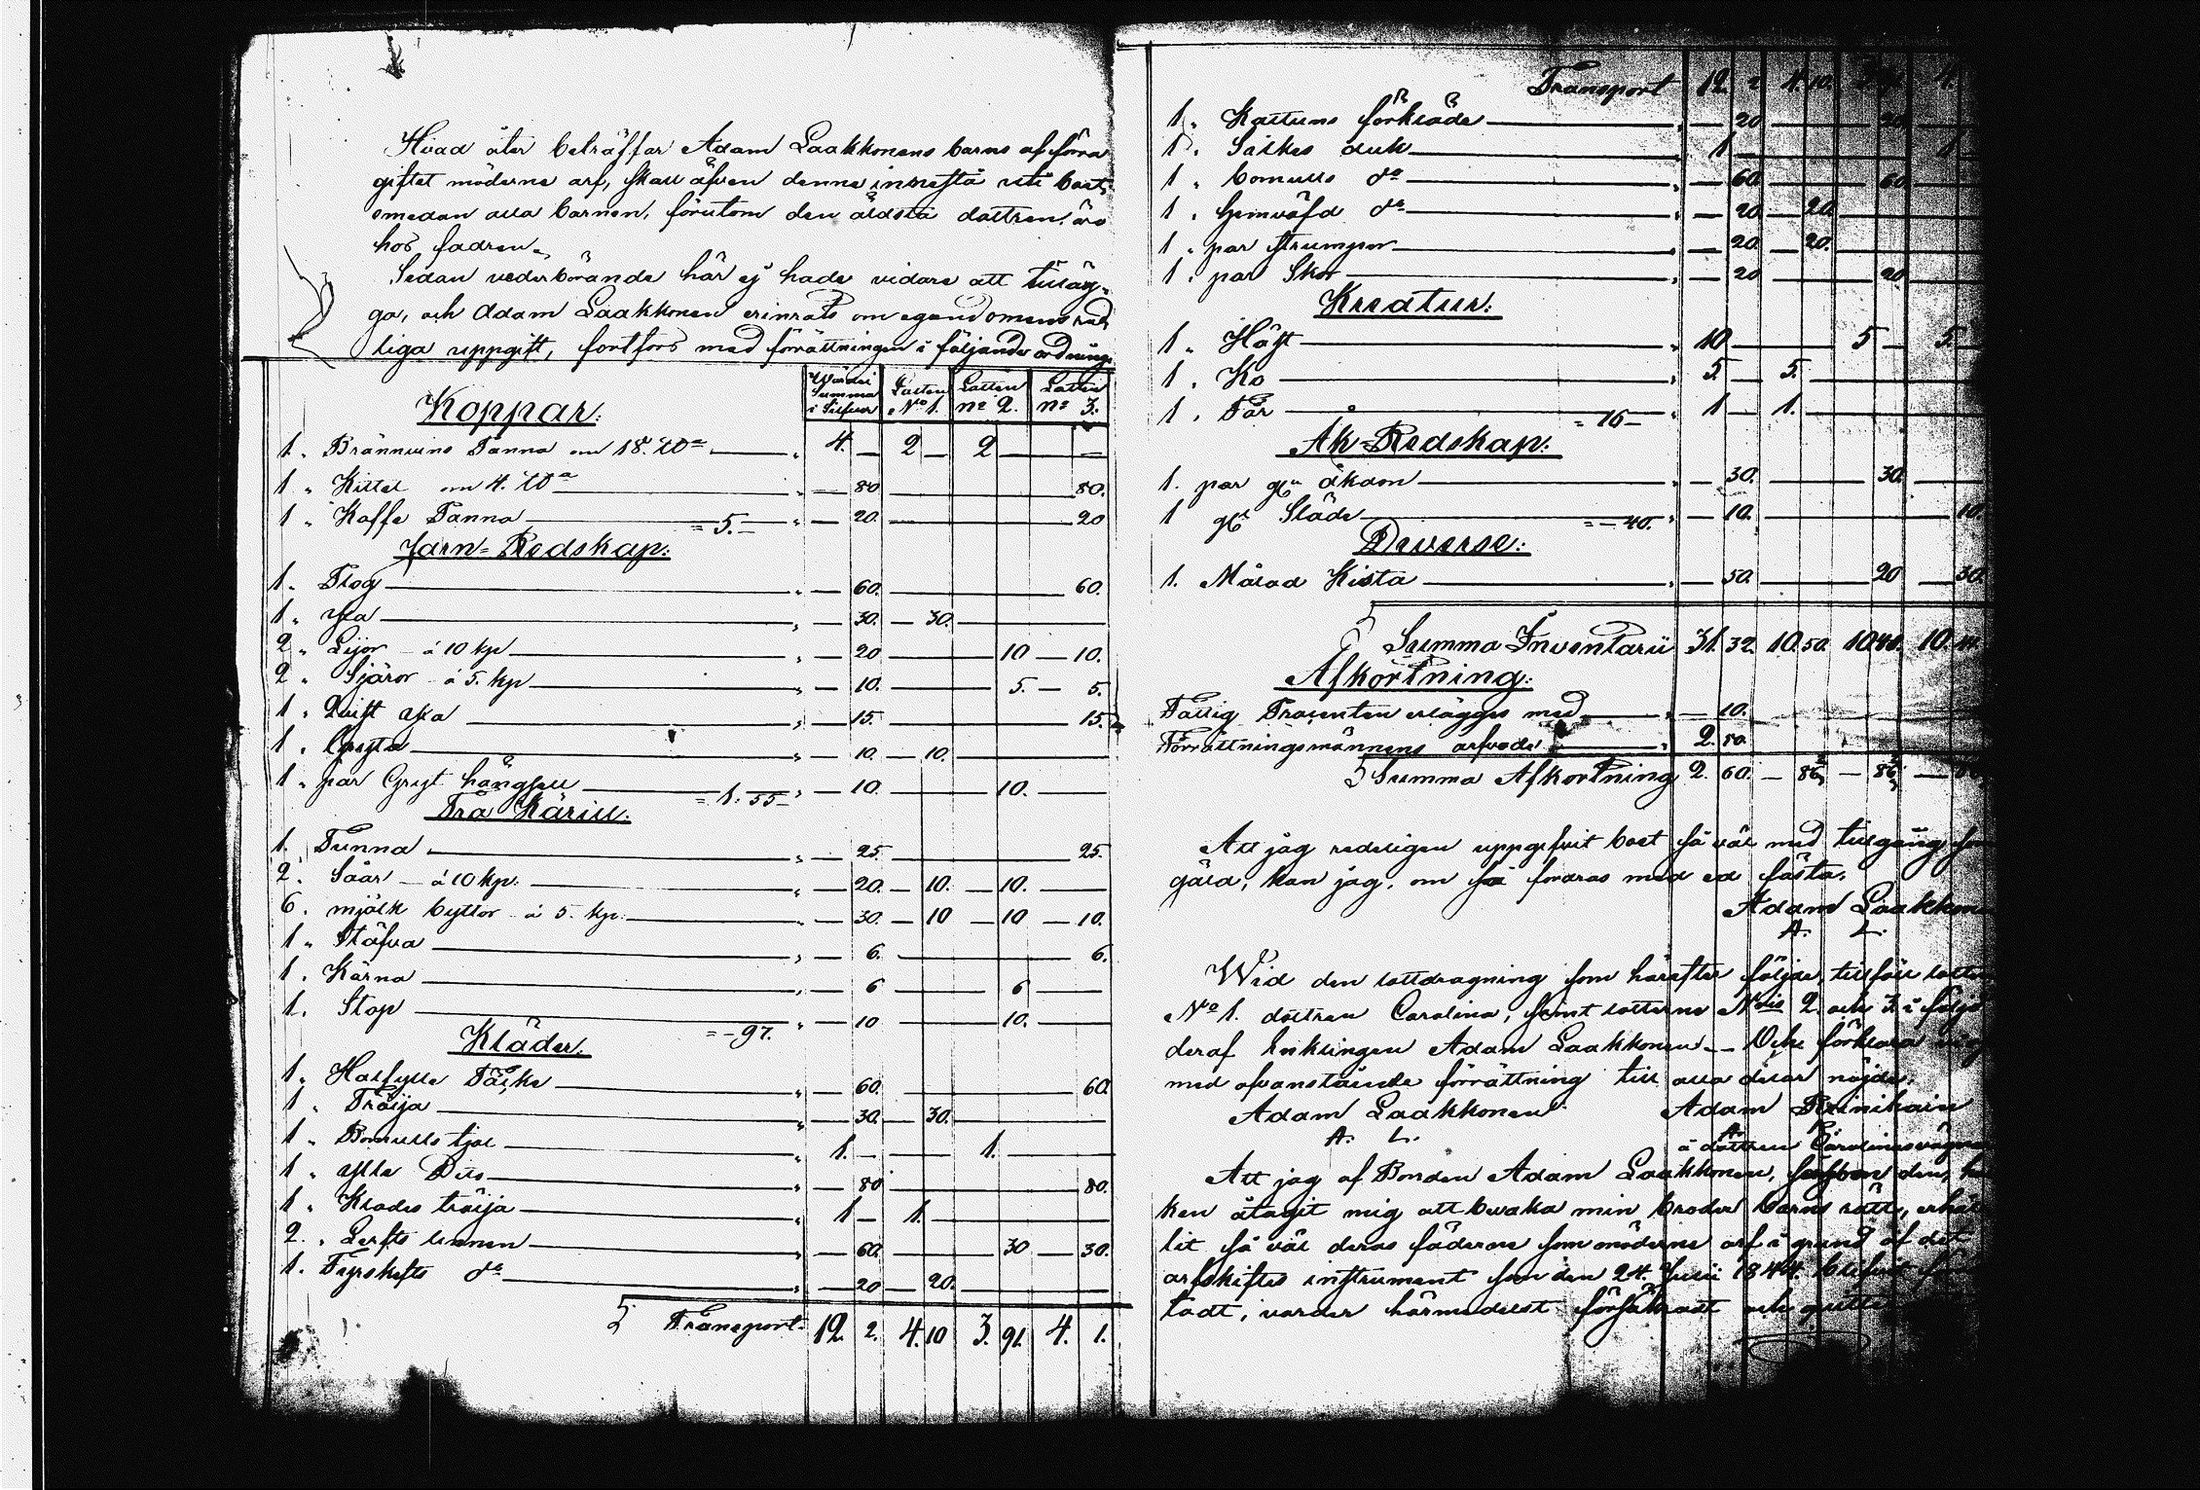 Hvad åter beträffar Adam Laakkonens barns af förra
giftet möderne arf, skall äfven denne innestå uti boet,
emedan alla barnen, förutom den äldsta dottren, äro
hos fadren.
Sedan vederbörande här ej hade vidare att tilläg-
ga, och Adam Laakkonen erinrats om egendomens red-
liga uppgift, fortfors med förrättningen i följande ordning:
Wärdei Summa i Silfver Lotten No 1. Lotten no 2. Lotten no 3.
Koppar:
1. Brännvins Panna om 18. 4. — 2 — 2
1 " Kittel om 4. — 80 80.
1 " Kaffe Panna = 5. — — 20. 20
Jarn=Redskap:
1. Plog — 60. 60.
1. Yxa — 30. — 30.
2 " Lijor — á 10 kp — 20 10 — 10.
2 " Skäror — á 5. kp — 10. 5. — 5.
1 " Qvist yxa — 15. 15.
1. Grÿta — 10. — 10.
1 " par Grÿt = 1. 55 — — 10. 10.
Trä Käril:
1. Tunna — 25. 25.
2. Såar — á 10 kp. — 20. — 10. — 10.
6. mjölk byttor á 5. kp. — 30. — 10 — 10 — 10.
1 " Stäfva — 6. 6.
1. Kärna — 6 6
1. Stop = — 97. — 10 10.
Kläder:
1. Halfylle — 60. 60.
1. Tröija — 30. — 30.
1 " Bomulls kjol 1. — 1.
1 " ylle Dito — 80 80.
1 " Klädes tröija 1 — 1.
2. Lerfts linnen — 60. 30 — 30.
1. do — 20 — 20.
Transport: 12. 2. 4. 10 3. 91. 4. 1.
Transport 12. 2 4. 10. 4.
1. Kattuns förkläde — 20 20
1. Silkes duk 1 1
1 " bomulls do — 60. 60.
1. hemväfd do — 20. — 20
1. par strumpor — 20. — 20.
1. par Skor — 20 20
Kreatur:
1. Häst 10 5 — 5.
1. Ko 5. — 5.
1. Får = 16 — 1 — 1.
Åk=Redskap:
1. par gl. åkdon — 30. 30.
1 gl. Släde = — 40. — 10. 10.
Diverse:
1. Målad Kista — 50. 20 — 30.
Summa Inventarii 31. 32. 10. 50. 10 10.
Afkortning:
Fattig Procenten erlägges med — 10.
Förrättningsmännens arfvode 2. 50.
Summa Afkortning 2. 60. — 86 — 86
Att jag redeligen uppgifvit boet så väl med tillgång som
gäld, kan jag, om så fordras med ed fästa.
Adam Laakkonen
A. L.
Wid den lottdragning som härefter följde, tillföll lotten
No 1. dottren Carolina, samt lotterne No 2. och 3 i följd
deraf Enklingen Adam Laakkonen — Och förklara sig
med ofvanstående förrättning till alla delar nöjde.
Adam Laakkonen Adam
A. L.
å dottren Carolinas vägnar
Att jag af Bonden Adam Laakkonen,
ken åtagit mig att bevaka min broders barns rätt, erhål-
lit så väl deras fäderne som möderne arf i grund af det
arfskiftes instrument som den 24. Julii 1844 blifvit
tadt, varder härmedelst försäkradt och